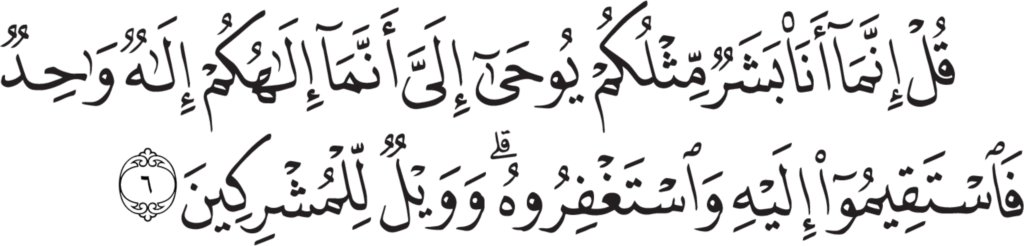 قُلْ إِنَّمَآ أَنَا۠ بَشَرٌ مِّثْلُكُمْ يُوحَىٰٓ إِلَىَّ أَنَّمَآ إِلَـٰهُكُمْ إِلَـٰهٌ وَٰحِدٌ
فَٱسْتَقِيمُوٓا۟ إِلَيْهِ وَٱسْتَغْفِرُوهُ ۗ وَوَيْلٌ لِّلْمُشْرِكِينَ ٦